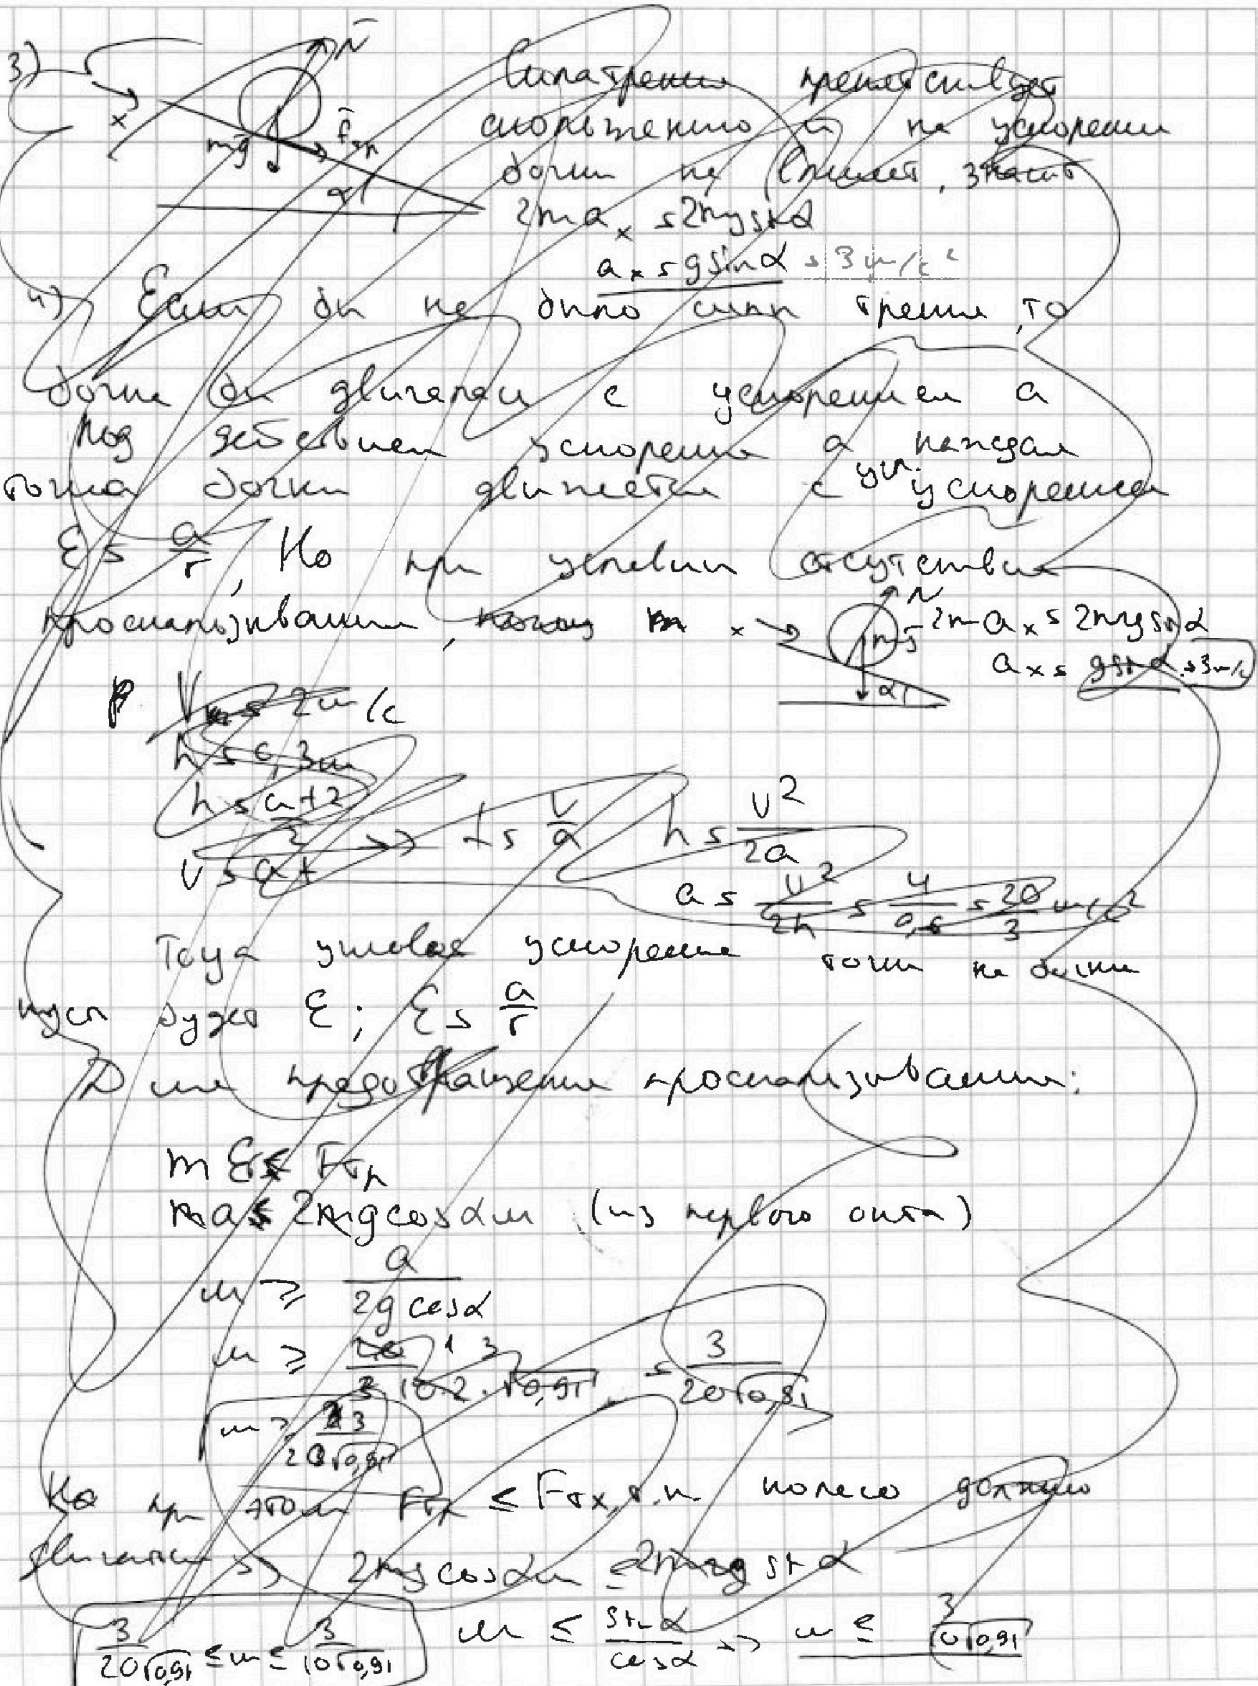 3)
N
x
mg
Fтр
α
Сила трения препятствует
скольжению и на ускорение
бочки не влияет, значит
2ma_x = 2mg sin α
a_x = g sin α = 3 м/с²
4) Если бы не было силы трения, то
бочка бы двигалась с ускорением a
Под действием ускорения a каждая
точка бочки движется с уг. ускорением
ε = a/r, Но при условии отсутствия
проскальзывания,
x
N
mg
α
2m a_x = 2mg sin α
a_x = g sin α = 3 м/с
V = 2 м/с
h = 0,3 м
h = at²/2
V = at => t = V/a h = V²/2a
a = V²/2h = 4/0,6 = 20/3 м/с²
угловое ускорение точки на бочке
будет ε; ε = a/r
Для предотвращения проскальзывания:
m ε ≤ Fтр
ma ≤ 2mg cos α μ (из первого опыта)
μ ≥ a / 2g cos α
μ ≥ = 3 / 20√0,91
μ ≥ 3 / 20√0,91
Но при этом Fтр ≤ Fтx, т.к. колесо должно
двигаться => 2mg cos α μ ≤ 2mg sin α
3 / 20√0,91 ≤ μ ≤ 3 / 10√0,91 μ ≤ sin α / cos α => μ ≤ 3 / 10√0,91